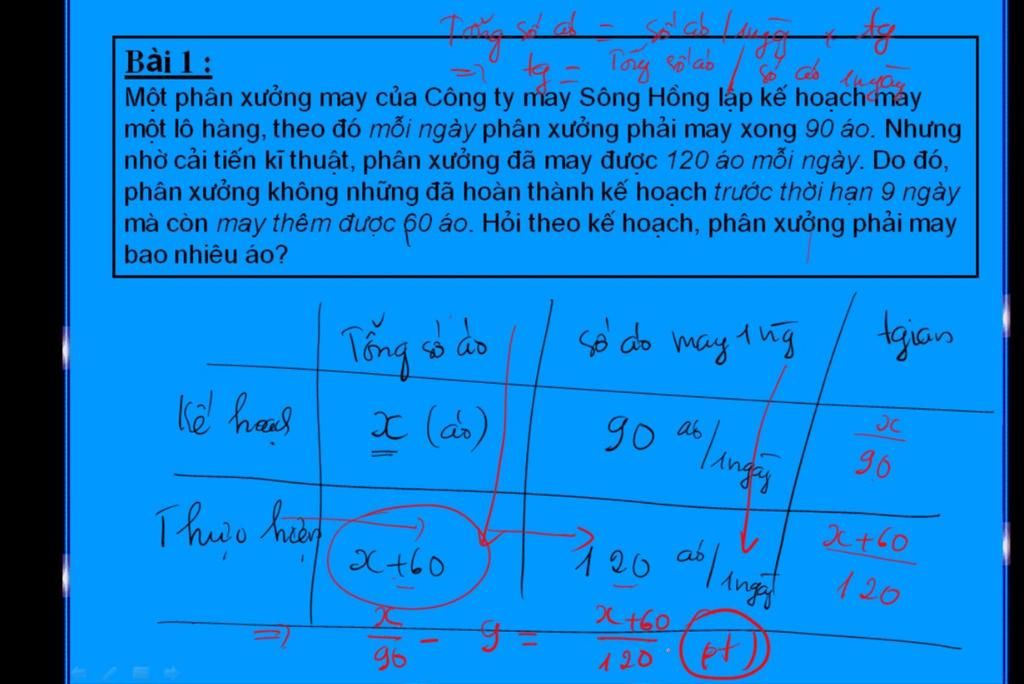 Tổng số áo = số áo / 1 ngày × tg
=> tg = Tổng số áo / số áo 1 ngày
Bài 1 :
Một phân xưởng may của Công ty may Sông Hồng lập kế hoạch may
một lô hàng, theo đó mỗi ngày phân xưởng phải may xong 90 áo. Nhưng
nhờ cải tiến kĩ thuật, phân xưởng đã may được 120 áo mỗi ngày. Do đó,
phân xưởng không những đã hoàn thành kế hoạch trước thời hạn 9 ngày
mà còn may thêm được 60 áo. Hỏi theo kế hoạch, phân xưởng phải may
bao nhiêu áo?
Tổng số áo số áo may 1 ng tgian
Kế hoạch x (áo) 90 áo/1ngày x/90
Thực hiện x+60 120 áo/1ngày x+60/120
=> x/90 - 9 = x+60/120 (pt)